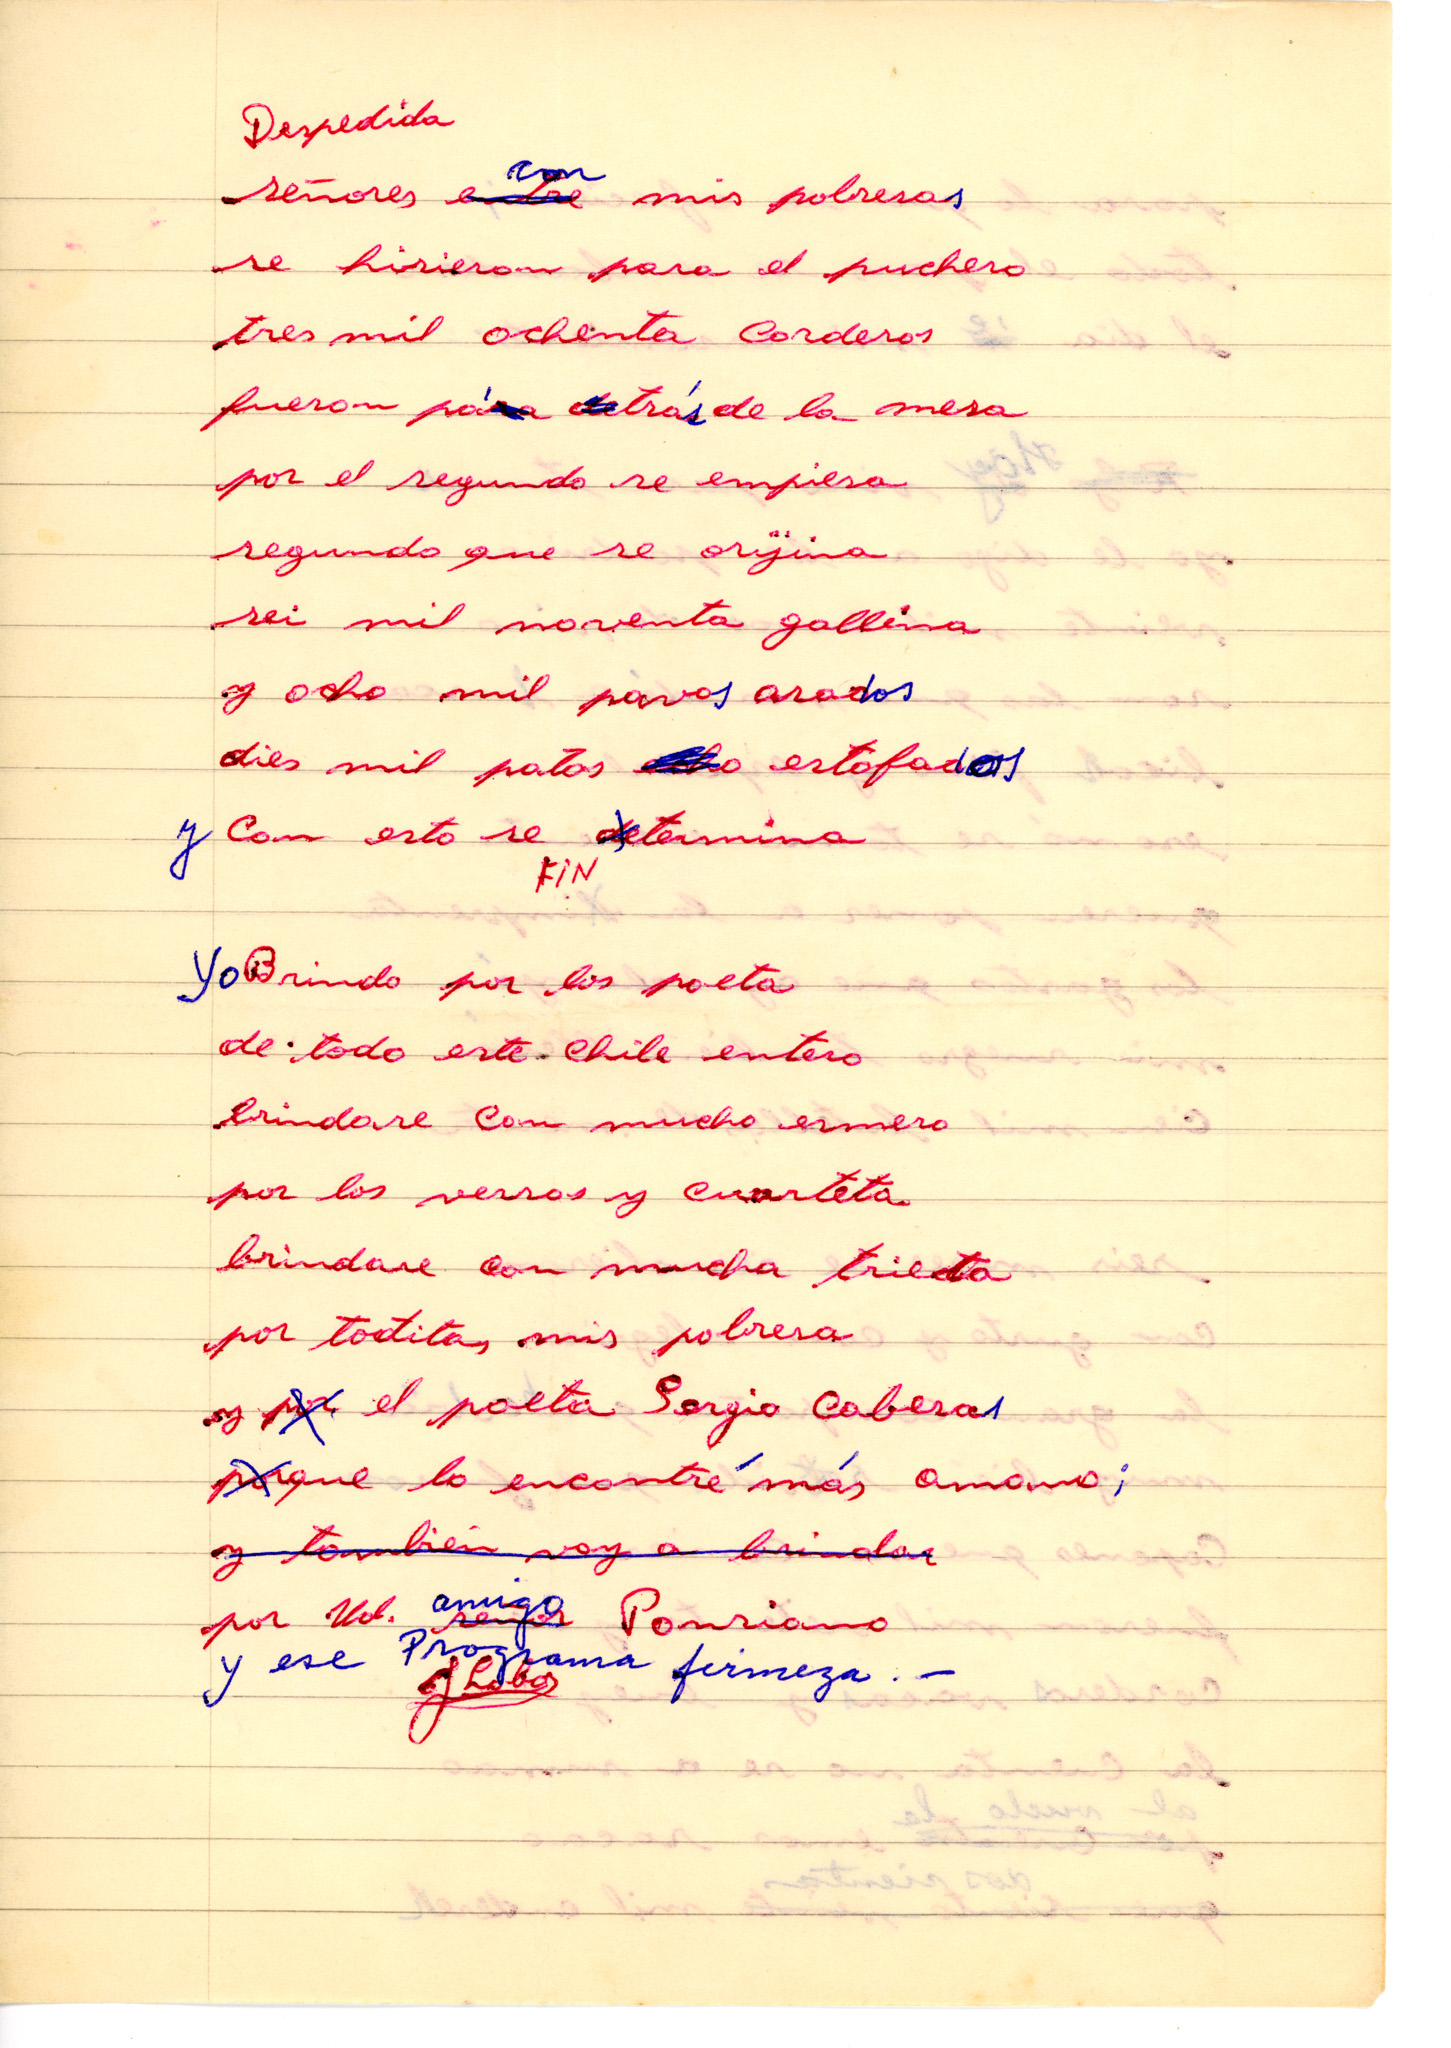 Despedida
señores con mis pobresas
se hisieron para el puchero
tres mil ochenta Corderos
fueron pá detrás de la mesa
por el segundo se empiesa
segundo que se orijina
sei mil noventa gallina
y ocho mil pavos asados
dies mil patos estofados
y Con esto se termina
FiN
Yo Brindo por los poeta
de todo este Chile entero
brindare Con mucho esmero
por los versos y cuarteta
brindare con mucha
por toditas mis pobresa
y el poeta Sergio Cabesas
que lo encontré más amano;
y también voy a brindar
por Ud. amigo Ponsiano
y ese Programa firmeza. –
Lobos